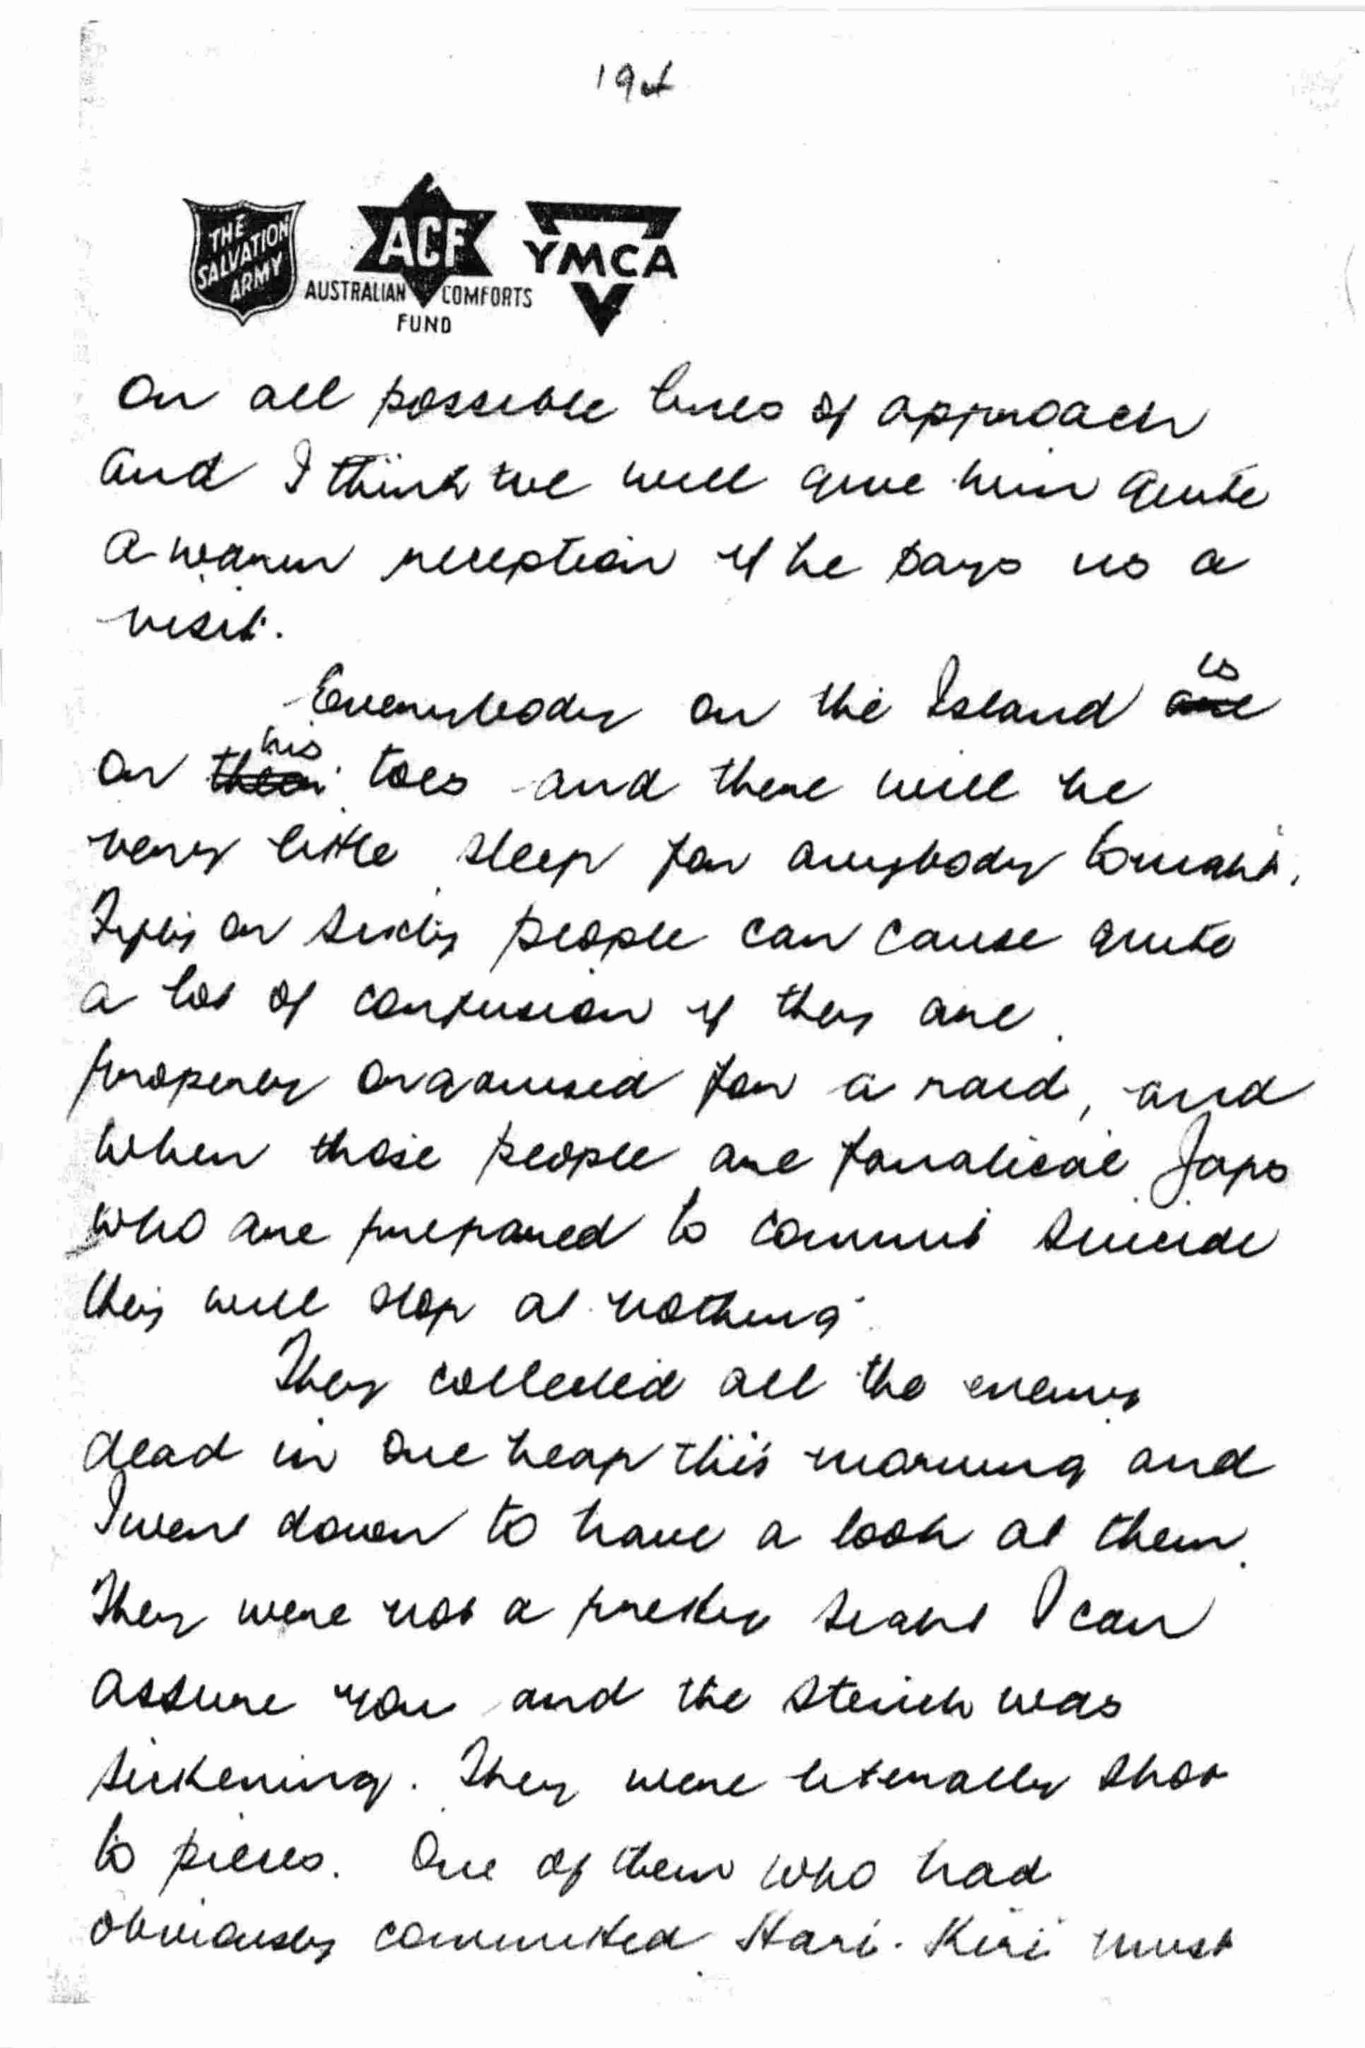 19d
THE SALVATION ARMY
ACF
AUSTRALIAN COMFORTS FUND
YMCA
on all possible lines of approach
and I think we will give him quite
a warm reception if he pays us a
visit.
Everybody on the Island ~~are~~ is
on ~~their~~ his toes and there will be
very little sleep for anybody tonight.
Fifty or sixty people can cause quite
a lot of confusion if they are
properly organised for a raid, and
when those people are fanatical Japs
who are prepared to commit suicide
they will stop at nothing.
They collected all the enemy
dead in one heap this morning and
I went down to have a look at them.
They were not a pretty sight I can
assure you and the stench was
sickening. They were literally shot
to pieces. One of them who had
obviously committed Hari-Kiri must